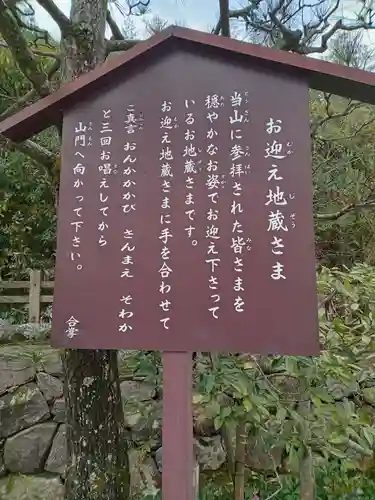 お迎え地蔵さま
当山に参拝された皆さまを
穏やかなお姿でお迎え下さって
いるお地蔵さまです。
お迎え地蔵さまに手を合わせて
ご真言 おんかかかび さんまえ そわか
と三回お唱えしてから
山門へ向かって下さい。
合掌